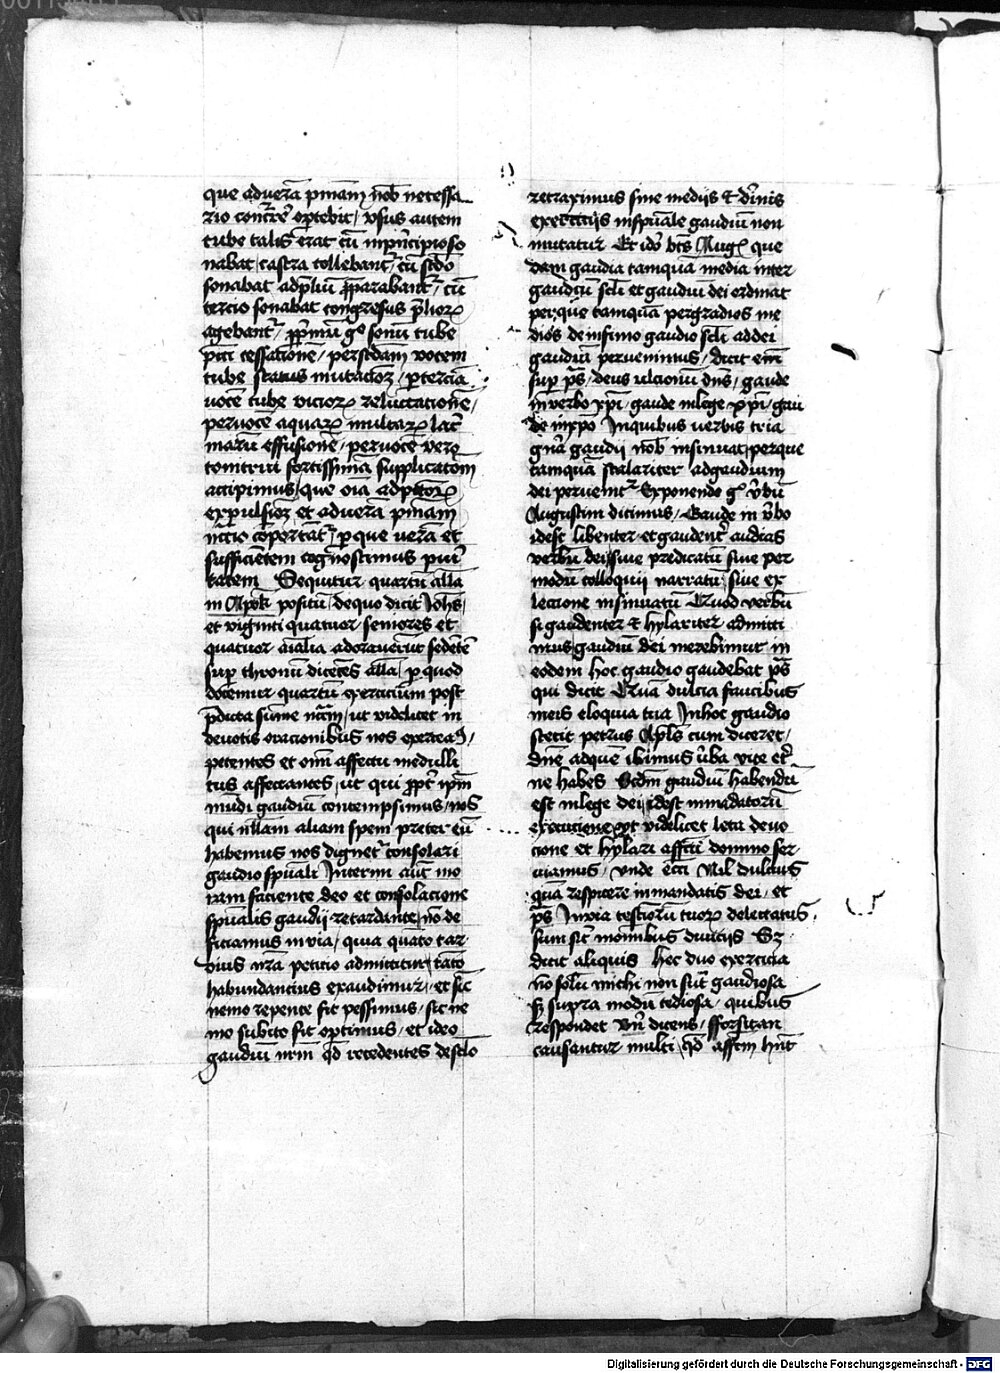 que ad verā pniam nob̄ necessa
rio concurrē oportebit / usus autem
tube talis erat cū in principio so
nabat castra tollebant᷑ / cū scd̄o
sonabat ad prliū p̄parabant᷑ / cū
tercio sonabat congressus p̄lioꝝ
agebant᷑ / p primū gͦ sonū tube
pcti cessationē / per scdam vocem
tube status mutacōꝫ / p terciā
vocē tube vicioꝝ reluctationē /
per vocē aquaꝝ multaꝝ lacri
marū effusionē / per vocē vero
tonitrui fortissimā supplicatōm
accipimus / que oīa ad pctōꝝ
expulsioꝫ et ad verā pniam
nccio cōportāt᷑ / p que verā et
sufficiētem cognoscimus puri
tatem Sequitur quartū alla
in Apok̄ positū / de quo dicit Joh̄s /
et viginti quatuor seniores et
quatuor aīalia adoraverūt sedētē
sup thronū dicētes alla / p quod
docemur quartū exercicium post
p̄dicta sume nc̄rm / ut videlicet in
devotis oracionibus nos exercea9 /
petentes et om̄i affectu medulli
tus affectantes / ut qui ꝓpt̄ ip̄m
mūdi gaudiū contempsimus / nos
qui nullam aliam spem preter eū
habemus nos dignet᷑ consolari
gaudio spūali Interim aūt mo
ram faciente deo et consolacione
spūalis gaudij retardante / nō de
ficiamus in via / quia quāto tar
dius nr̄a peticio admittitur / tāto
habundancius exaudimur / et sic̄
nemo repente fit pessimus / sic ne
mo subito fit optimus / et ideo
gaudiū nr̄m qd̄ recedentes de sclo
retraximus sine medijs et div̄nis
exercicijs in spūale gaudiū non
mutatur Et idō bt̄s Aug᷑ que
dam gaudia tamquā media inter
gaudiū scli et gaudiū dei ordinat
per que tamquā per gradios me
dios de infimo gaudio scli ad dei
gaudiū pervenimus / dicit em̄
sup ps̄ / deus ulcionū dn̄s / gaude
in verbo xp̄i / gaude in lege xp̄i / gau
de in xp̄o In quibus verbis tria
gn̄a gaudij nob̄ insinuat / per que
tamquā scalariter ad gaudium
dei pervenit᷑ Exponendo gͦ v̄bū
Augustini dicimus / Gaude in v̄bo
idest libenter et gaudent̄ audias
verbū dei / sive predicatū sive per
modū colloquij narratū / sive ex
lectione insinuatū Quod verbū
si gaudenter et hylariter admitti
mus / gaudiū dei merebimur in
eodem hoc gaudio gaudebat ps̄
qui dicit Quā dulcia faucibus
meis eloquia tua In hoc gaudio
stetit petrus Apl̄s cum diceret /
dn̄e ad quē ibimus v̄ba vite et̄
ne habes Scdm̄ gaudiū habendū
est in lege dei / idest in mādatorū
executione / ut videlicet leta devo
cione et hylari affctū domino ser
viamus / unde ecc̄i Nil dulcius
quā respicere in mandatis dei / et
ps̄ In via testioniū tuoꝝ delectatus
sum sic̄ in om̄ibus divicijs Sꝫ
dicit aliquis hec duo exercicia
nō solū michi non sūt gaudiosa
sꝫ supra modū tediosa / quibus
respondet Bn̄ dicens / fforsitan
causantur multi / qd̄ affcm hn̄t